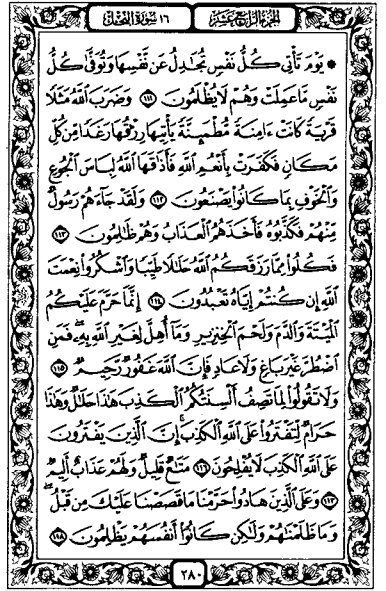 الجزء الرابع عشر
١٦ سورة النحل
۞ يَوْمَ تَأْتِى كُلُّ نَفْسٍ تُجَٰدِلُ عَن نَّفْسِهَا وَتُوَفَّىٰ كُلُّ
نَفْسٍ مَّا عَمِلَتْ وَهُمْ لَا يُظْلَمُونَ ١١١ وَضَرَبَ ٱللَّهُ مَثَلًا
قَرْيَةً كَانَتْ ءَامِنَةً مُّطْمَئِنَّةً يَأْتِيهَا رِزْقُهَا رَغَدًا مِّن كُلِّ
مَكَانٍ فَكَفَرَتْ بِأَنْعُمِ ٱللَّهِ فَأَذَٰقَهَا ٱللَّهُ لِبَاسَ ٱلْجُوعِ
وَٱلْخَوْفِ بِمَا كَانُوا۟ يَصْنَعُونَ ١١٢ وَلَقَدْ جَآءَهُمْ رَسُولٌ
مِّنْهُمْ فَكَذَّبُوهُ فَأَخَذَهُمُ ٱلْعَذَابُ وَهُمْ ظَٰلِمُونَ ١١٣
فَكُلُوا۟ مِمَّا رَزَقَكُمُ ٱللَّهُ حَلَٰلًا طَيِّبًا وَٱشْكُرُوا۟ نِعْمَتَ
ٱللَّهِ إِن كُنتُمْ إِيَّاهُ تَعْبُدُونَ ١١٤ إِنَّمَا حَرَّمَ عَلَيْكُمُ
ٱلْمَيْتَةَ وَٱلدَّمَ وَلَحْمَ ٱلْخِنزِيرِ وَمَآ أُهِلَّ لِغَيْرِ ٱللَّهِ بِهِۦ ۖ فَمَنِ
ٱضْطُرَّ غَيْرَ بَاغٍ وَلَا عَادٍ فَإِنَّ ٱللَّهَ غَفُورٌ رَّحِيمٌ ١١٥
وَلَا تَقُولُوا۟ لِمَا تَصِفُ أَلْسِنَتُكُمُ ٱلْكَذِبَ هَٰذَا حَلَٰلٌ وَهَٰذَا
حَرَامٌ لِّتَفْتَرُوا۟ عَلَى ٱللَّهِ ٱلْكَذِبَ ۚ إِنَّ ٱلَّذِينَ يَفْتَرُونَ
عَلَى ٱللَّهِ ٱلْكَذِبَ لَا يُفْلِحُونَ ١١٦ مَتَٰعٌ قَلِيلٌ وَلَهُمْ عَذَابٌ أَلِيمٌ
١١٧ وَعَلَى ٱلَّذِينَ هَادُوا۟ حَرَّمْنَا مَا قَصَصْنَا عَلَيْكَ مِن قَبْلُ ۖ
وَمَا ظَلَمْنَٰهُمْ وَلَٰكِن كَانُوٓا۟ أَنفُسَهُمْ يَظْلِمُونَ ١١٨
٢٨٠